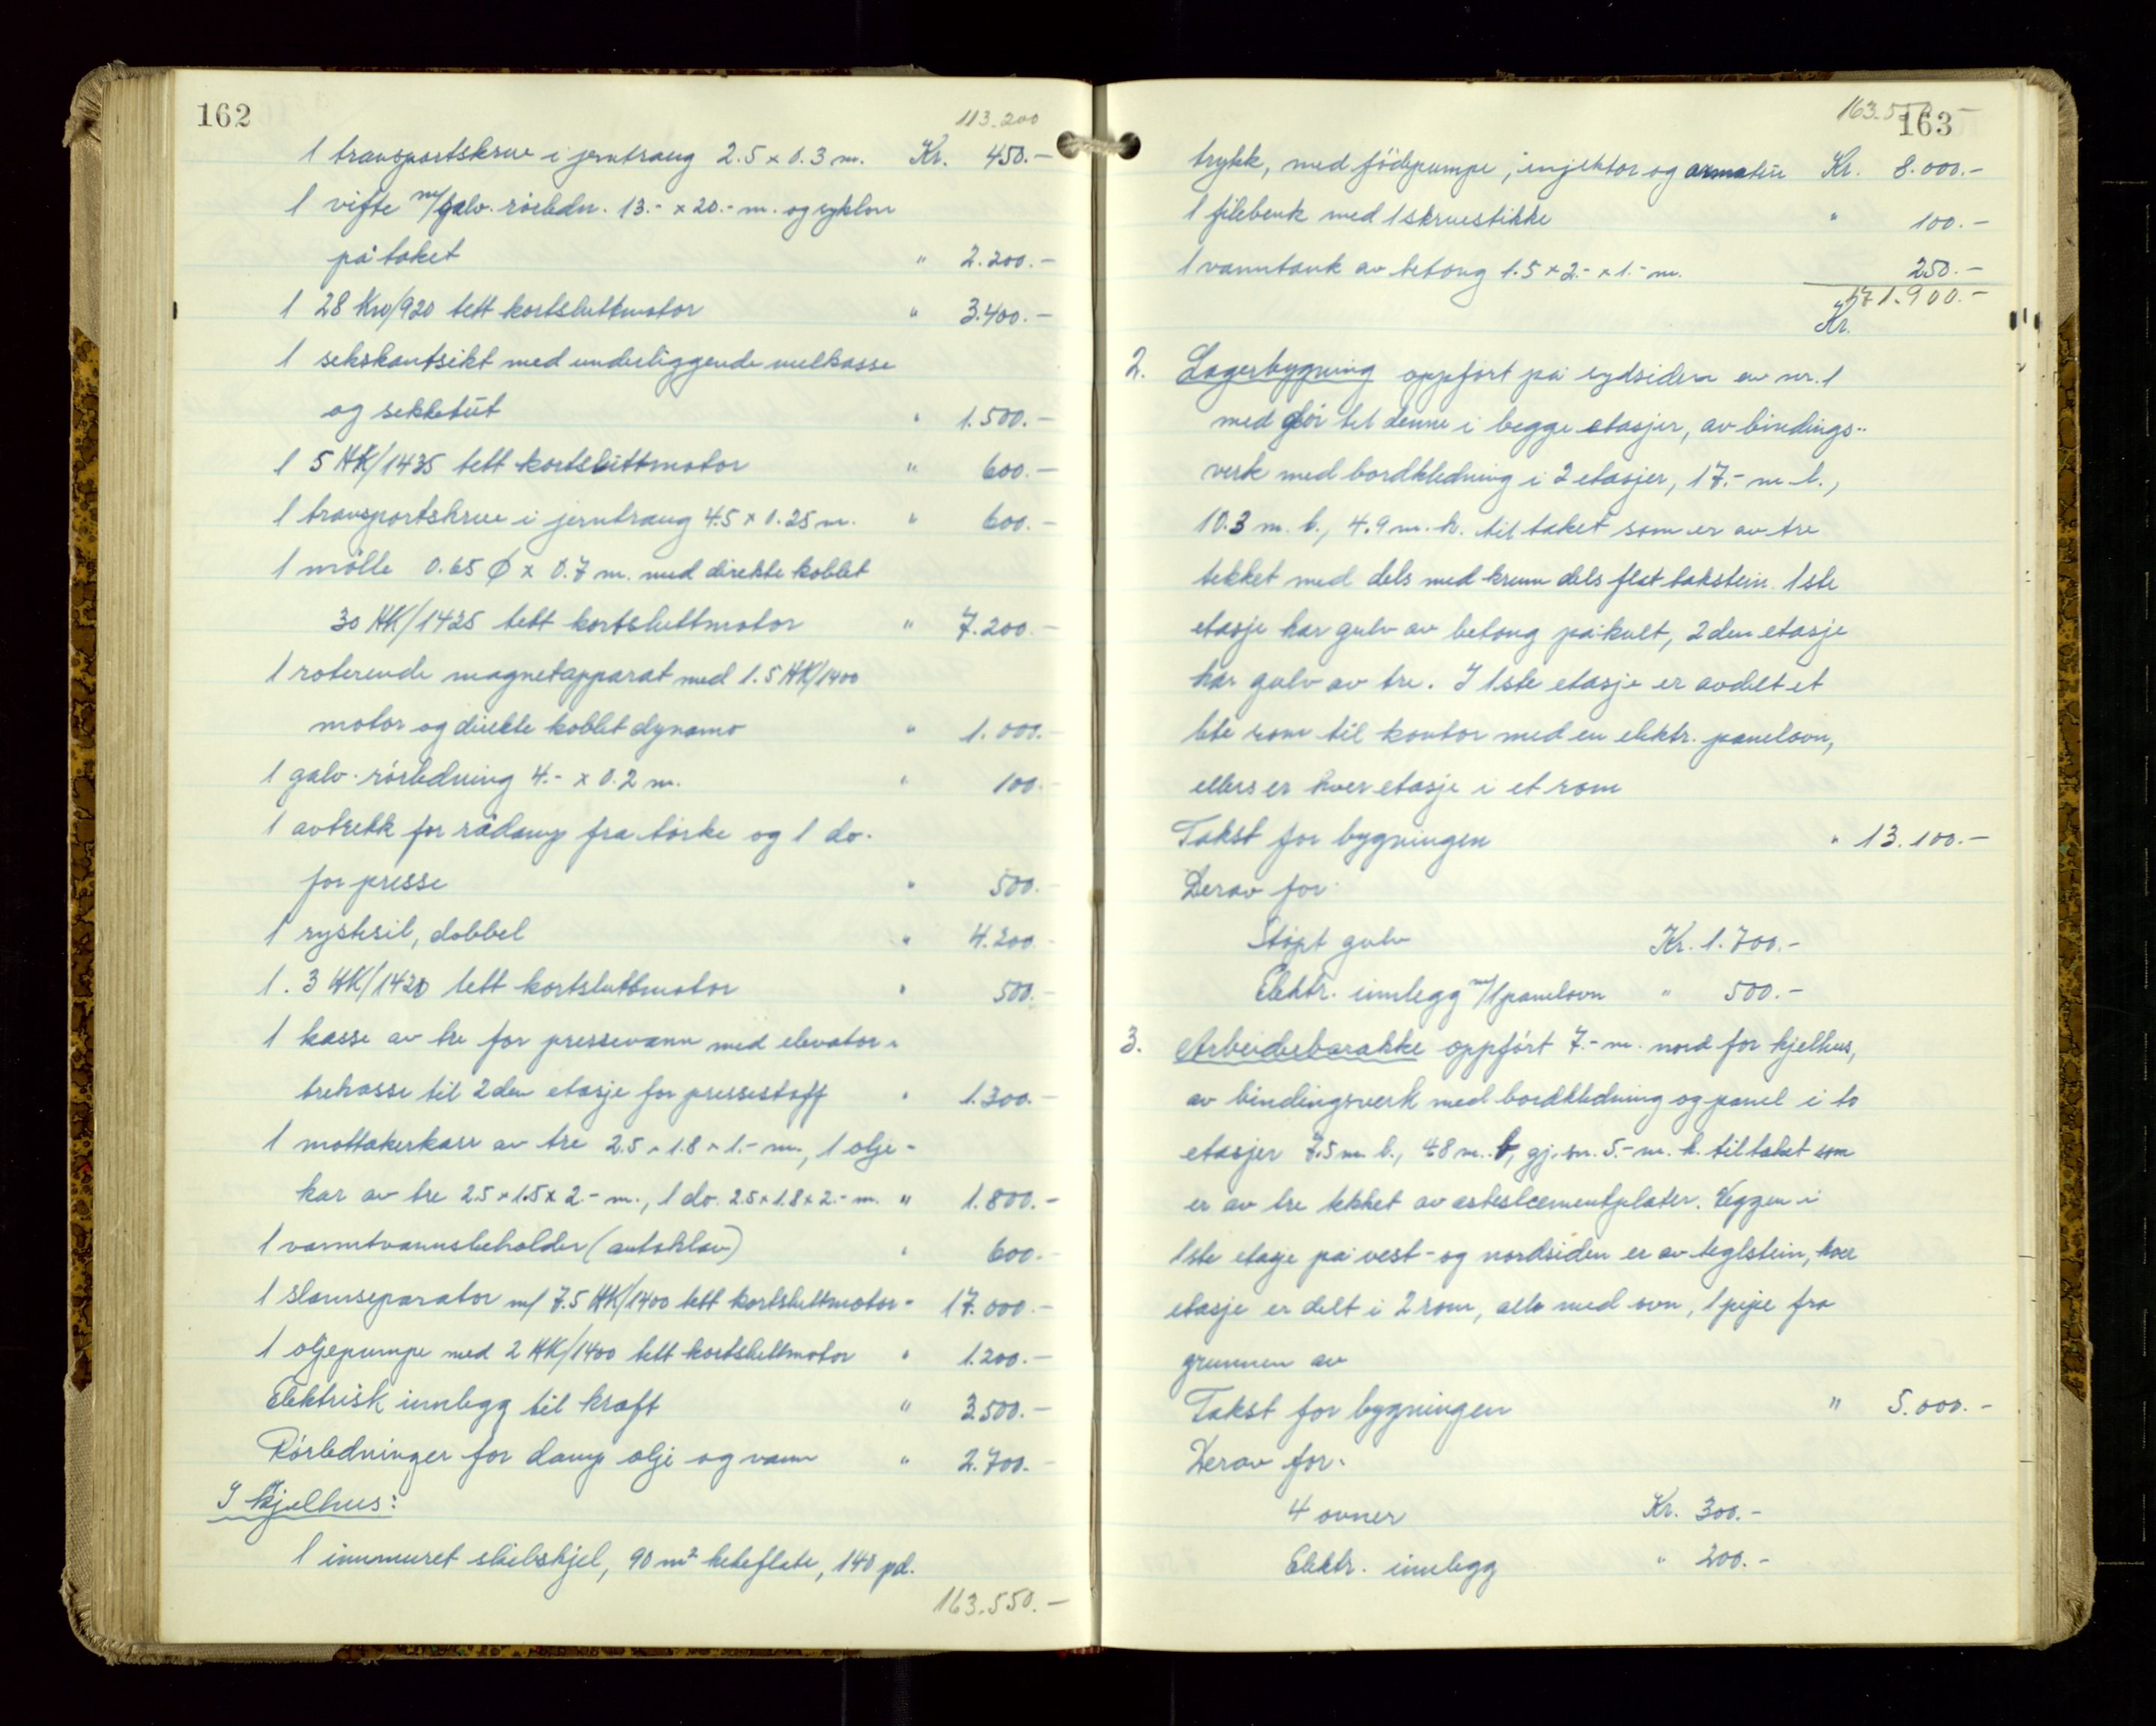 162
113.200
1 transportskrue i jerntraug 2.5 x 0.3 m. Kr. 450.-
1 vifte m/galv. rörledn. 13.- x 20.- m. og syklon
på taket " 2.200.-
1 28 Kw/920 tett kortsluttmotor " 3.400.-
1 sekskantsikt med underliggende melkasse
og sekketut " 1.500.-
1 5 HK/1435 tett kortsluttmotor " 600.-
1 transportskrue i jerntraug 4.5 x 0.25 m. " 600.-
1 mölle 0.65 Ø x 0.7 m. med direkte koblet
30 HK/1425 tett kortsluttmotor " 7.200.-
1 roterende magnetapparat med 1.5 HK/1400
motor og direkte koblet dynamo " 1.000.-
1 galv. rörledning 4.- x 0.2 m. " 100.-
1 avtrekk for rådamp fra törke og 1 do.
for presse " 500.-
1 rystesil, dobbel " 4.200.-
1. 3 HK/1420 tett kortsluttmotor " 500.-
1 kasse av tre for pressevann med elevator i
trekasse til 2den etasje for pressestoff " 1.300.-
1 mottakerkasse av tre 2.5 x 1.8 x 1.- m., 1 olje-
kar av tre 2.5 x 1.5 x 2.- m., 1 do. 2.5 x 1.8 x 2.- m. " 1.800.-
1 varmtvannsbeholder (autoklav) " 600.-
1 slamseparator m/ 7.5 HK/1400 tett kortsluttmotor " 17.000.-
1 oljepumpe med 2 HK/1400 tett kortsluttmotor " 1.200.-
Elektrisk innlegg til kraft " 3.500.-
Rörledninger for damp olje og vann " 2.700.-
I kjelhus:
1 innmuret skibskjel, 90 m² heteflate, 140 pd.
163.550.-
163.550.-
163
trykk, med födepumpe, injektor og armatur Kr. 8.000.-
1 filebenk med 1 skruestikke " 100.-
1 vanntank av betong 1.5 x 2.- x 1.- m. 250.-
Kr. 171.900.-
2. Lagerbygning oppfört på sydsiden av nr. 1
med dör til denne i begge etasjer, av bindings-
verk med bordkledning i 2 etasjer, 17.- m. l.,
10.3 m. b., 4.9 m. h. til taket som er av tre
tekket med dels med krum dels flat takstein. 1ste
etasje har gulv av betong på kult, 2den etasje
har gulv av tre. I 1ste etasje er avdelt et
lite rom til kontor med en elektr. panelovn,
ellers er hver etasje i et rom
Takst for bygningen " 13.100.-
Derav for:
Stöpt gulv Kr. 1.700.-
Elektr. innlegg m/1 panelovn " 500.-
3. Arbeiderbarakke oppfört 7.- m. nord for kjelhus,
av bindingsverk med bordkledning og panel i to
etasjer 7.5 m. l., 4.8 m. b., gj.sn. 5.- m. h. til taket som
er av tre tekket av asbestcementplater. Veggen i
1ste etasje på vest- og nordsiden er av teglstein, hver
etasje er delt i 2 rom, alle med ovn, 1 pipe fra
grunnen av
Takst for bygningen " 5.000.-
Derav for:
4 ovner Kr. 300.-
Elektr. innlegg " 200.-